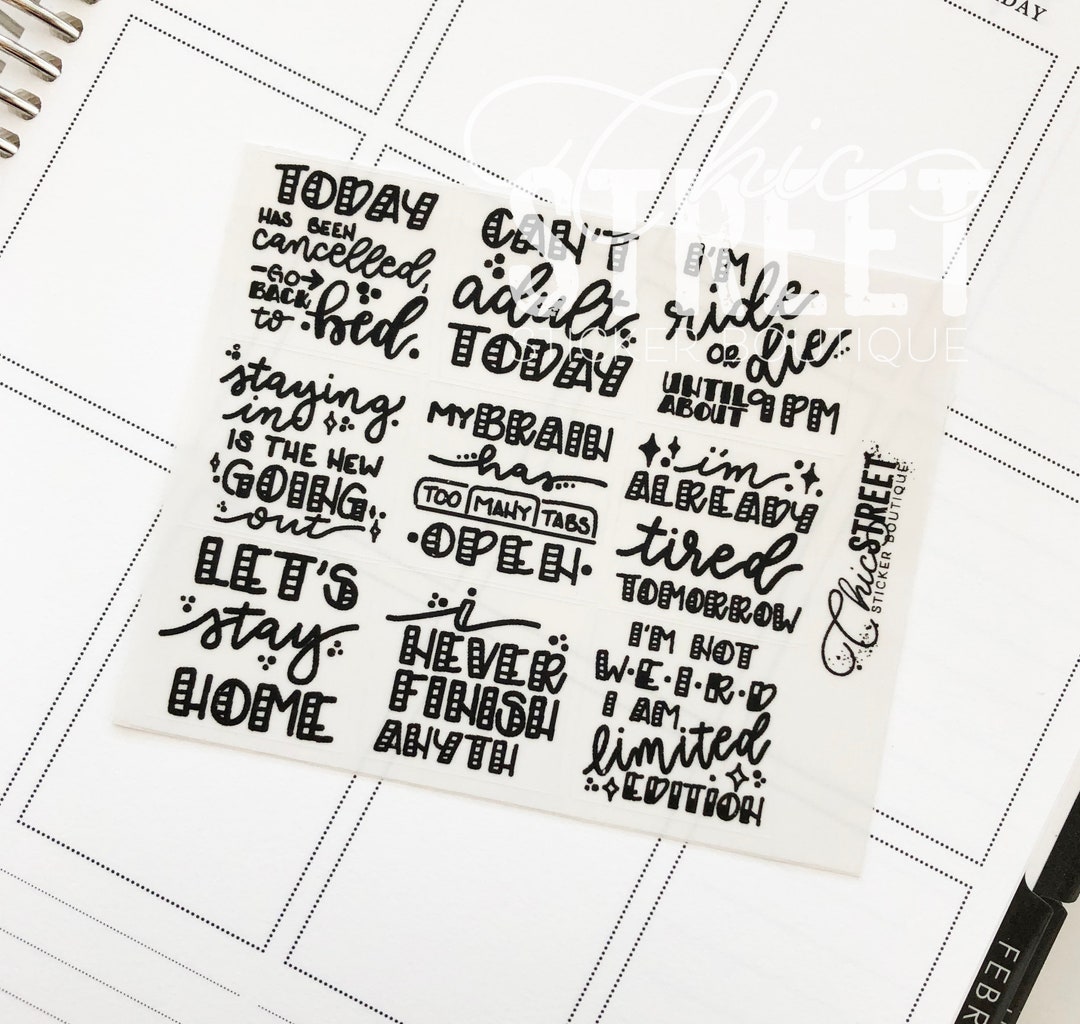 DAY
Chic
STREET
STICKER BOUTIQUE
TODAY
HAS BEEN
cancelled,
-GO→
BACK
to bed.
CAN'T
adult
TODAY
I'M
ride
OR die
UNTIL
ABOUT 9PM
staying
in
IS THE NEW
GOING
out
MY BRAIN
has
TOO MANY TABS
OPEN
i'm
ALREADY
tired
TOMORROW
LET'S
stay
HOME
i
NEVER
FINISH
ANYTH
I'M NOT
W·E·I·R·D
I AM
limited
EDITION
Chic STREET
STICKER BOUTIQUE
FEBR